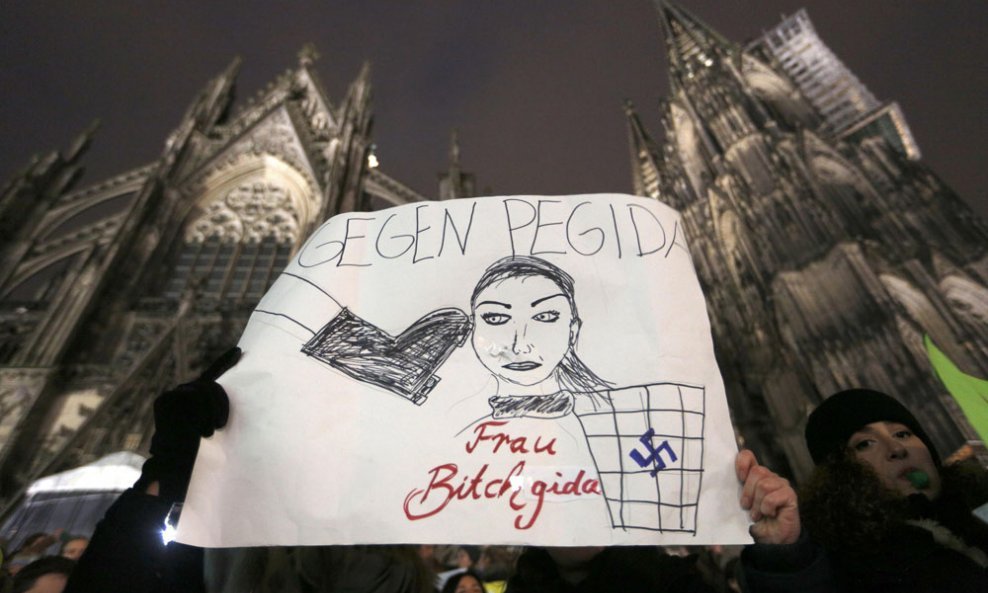 GEGEN PEGIDA
Frau
Bitch,gida